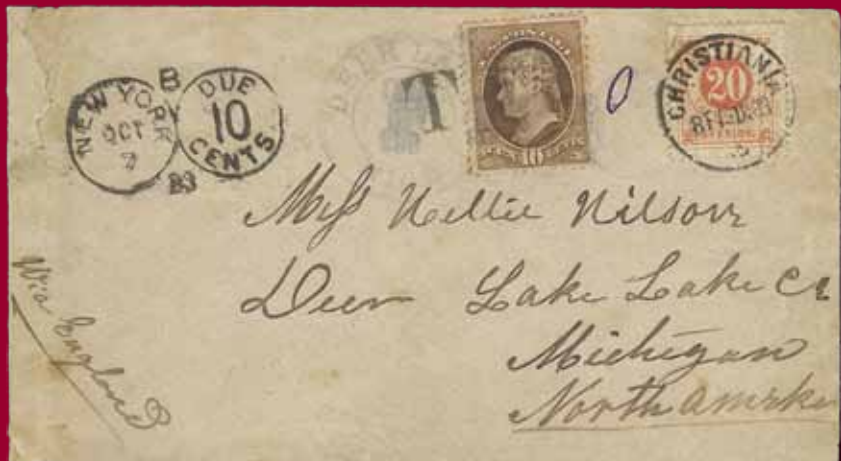 NEW YORK
OCT
7
83
B
DUE
10
CENTS
T
10
0
CHRISTIANIA
20
Miss Nellie Nilson
Deer Lake Lake Co
Michigan
North Amerka
Wia England